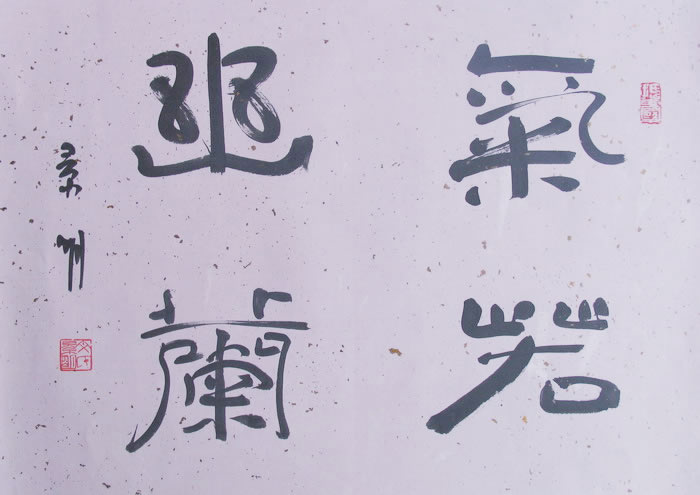 氣若
幽蘭
景州